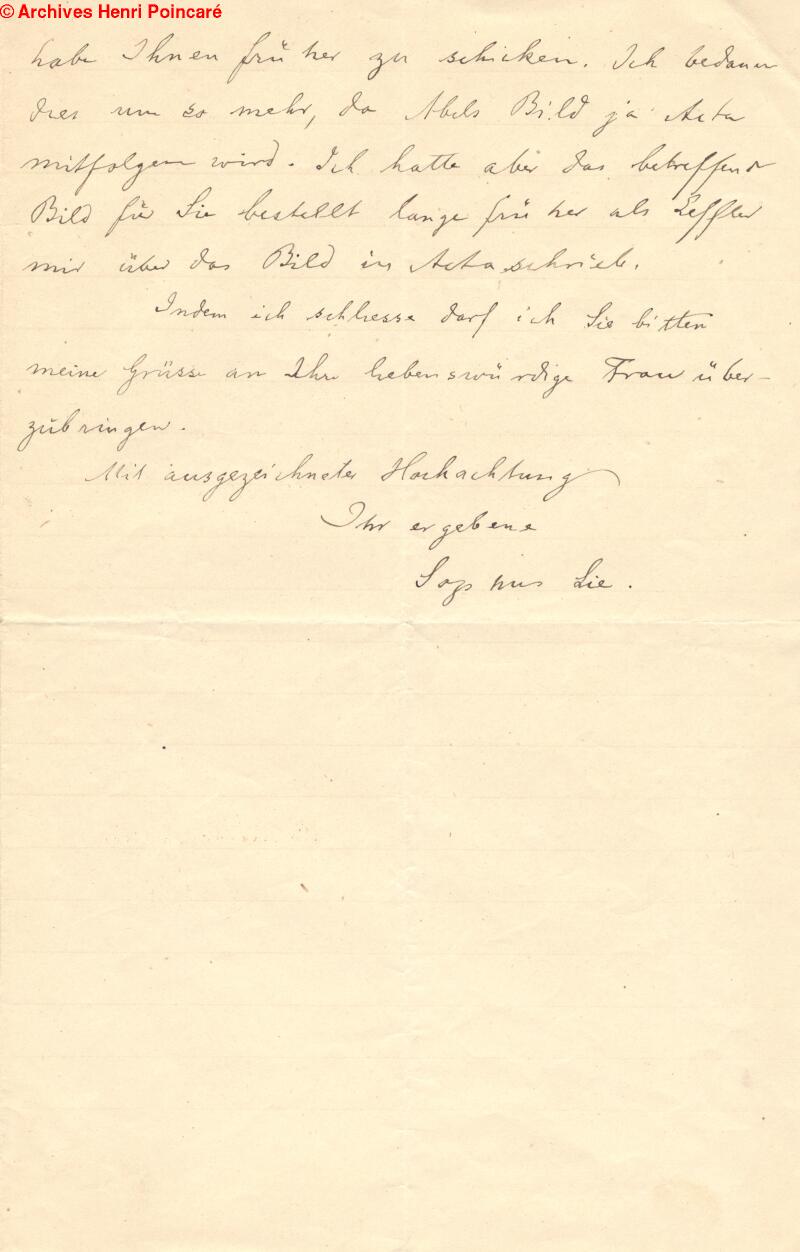 © Archives Henri Poincaré
habe Ihnen früher zu schicken. Ich bedaure
dies um so mehr, da Abels Bild ja Acta
mitfolgen wird. Ich hatte aber das betreffende
Bild für Sie bestellt lange früher als Leffler
mir über das Bild in Acta schrieb.
Indem ich schliesse darf ich Sie bitten
meine Grüsse an Ihre liebenswürdige Frau über-
zubringen.
Mit ausgezeichneter Hochachtung
Ihr ergebene
Sophus Lie.